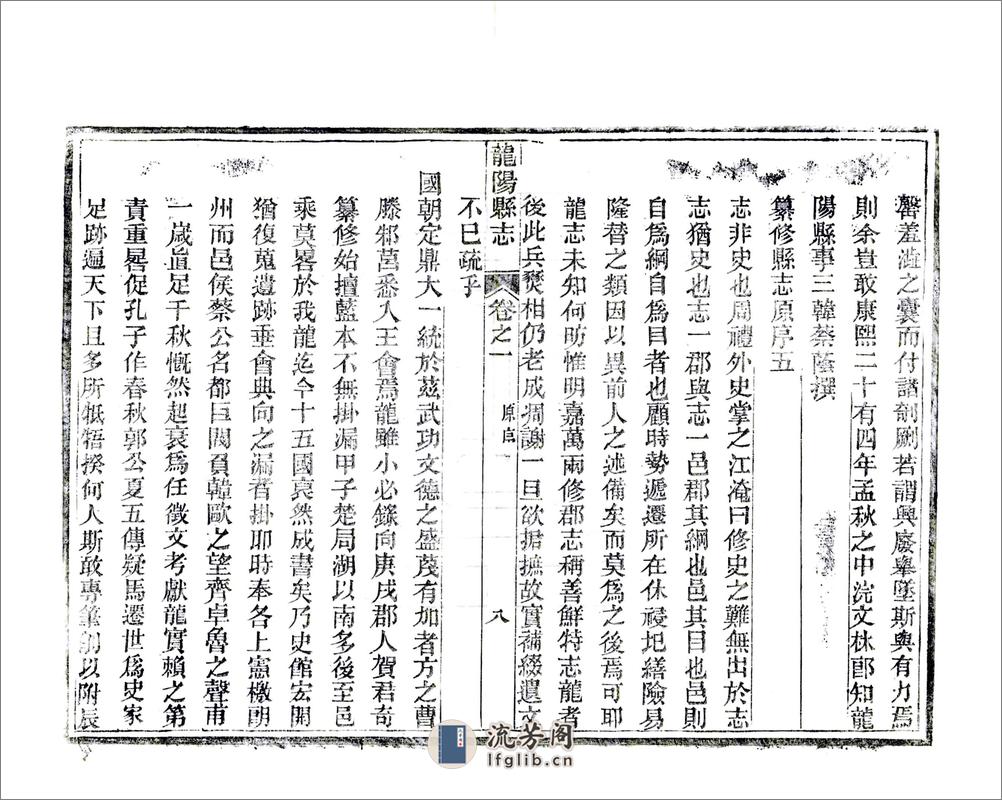 罄羞澁之囊而付諸剞劂若謂興廢舉墜斯與有力焉
則余豈敢康熙二十有四年孟秋之中浣文林郎知龍
陽縣事三韓蔡蔭撰
纂修縣志原序五
志非史也周禮外史掌之江淹曰修史之難無出於志
志猶史也志一郡與志一邑郡其綱也邑其目也邑則
自爲綱自爲目者也顧時勢遞遷所在休祲圯繕險易
隆替之類因以異前人之述備矣而莫爲之後焉可耶
龍志未知何昉惟明嘉萬兩修郡志稱善鮮特志龍者
後此兵燹相仍老成凋謝一旦欲摭故實補綴遺文
不已疏乎
龍陽縣志 卷之一 原序 八
國朝定鼎大一統於茲武功文德之盛蔑有加者方之曹
滕邾莒悉入王會焉龍雖小必錄向庚戌郡人賀君奇
纂修始擅藍本不無掛漏甲子楚局湖以南多後至邑
乘莫畧於我龍迄今十五國裒然成書矣乃史館宏開
猶復蒐遺跡垂會典向之漏者掛耶時奉各上憲檄朗
州而邑侯蔡公名都巨閥負韓歐之望齊卓魯之聲甫
一歲眞足千秋慨然起衰爲任徵文考獻龍實賴之第
責重晷促孔子作春秋郭公夏五傳疑馬遷世爲史家
足跡遍天下且多所牴牾揆何人斯敢專筆削以附辰
流芳阁
lfglib.cn